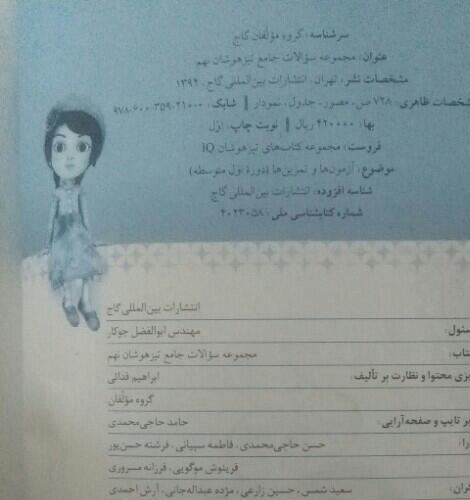 سرشناسه: گروه مؤلفان گاج
عنوان: مجموعه سؤالات جامع تیزهوشان نهم
مشخصات نشر: تهران، انتشارات بین‌المللی گاج، ۱۳۹۴
شخصات ظاهری: ۷۲۸ ص، مصور، جدول، نمودار || شابک: ۰-۲۱۰۰-۳۵۹-۶۰۰-۹۷۸
بها: ۴۲۰۰۰۰ ریال || نوبت چاپ: اوّل
فروست: مجموعه کتاب‌های تیزهوشان IQ
موضوع: آزمون‌ها و تمرین‌ها (دورهٔ اوّل متوسطه)
شناسه افزوده: انتشارات بین‌المللی گاج
شماره کتابشناسی ملی: ۴۰۲۳۰۵۸
انتشارات بین‌المللی گاج
سئول: مهندس ابوالفضل جوکار
کتاب: مجموعه سؤالات جامع تیزهوشان نهم
یزی محتوا و نظارت بر تألیف: ابراهیم فدائی
گروه مؤلّفان
بر تایپ و صفحه‌آرایی: حامد حاجی‌محمدی
را: حسن حاجی‌محمدی، فاطمه سیبانی، فرشته حسن‌پور
فرینوش موگویی، فرزانه مسروری
سعید شمس، حسین زارعی، مژده عبداله‌جانی، آرش احمدی